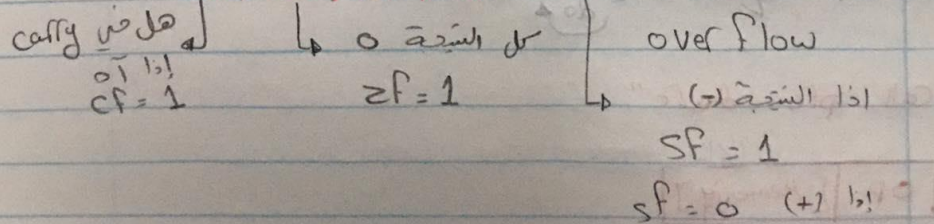 هل في carry
إذا آه
cf = 1
كل النتيجة 0
zf = 1
over flow
اذا النتيجة (-)
sf = 1
sf = 0 اذا (+)